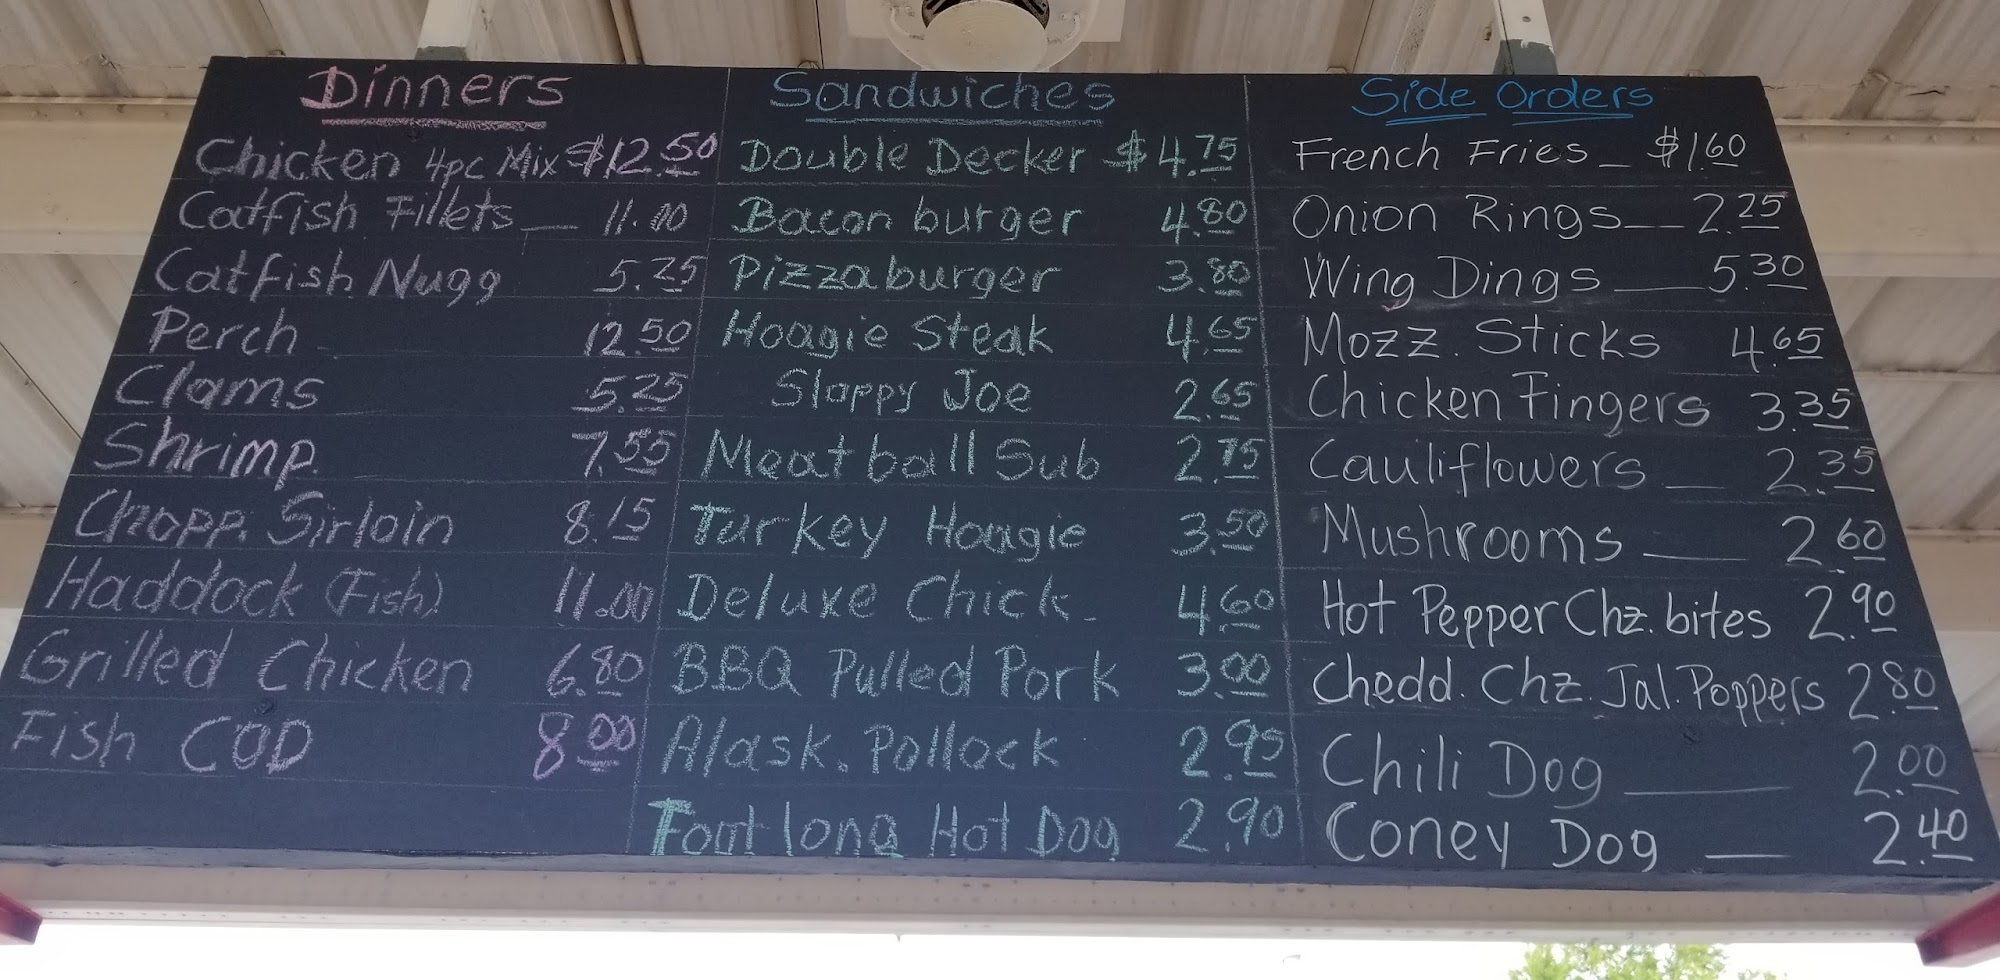 Dinners
Chicken 4pc Mix $12.50
Catfish Fillets 11.00
Catfish Nugg 5.25
Perch 12.50
Clams 5.25
Shrimp. 7.55
Chopp. Sirloin 8.15
Haddock (Fish) 11.00
Grilled Chicken 6.80
Fish COD 8.00
Sandwiches
Double Decker $4.75
Bacon burger 4.80
Pizzaburger 3.80
Hoagie Steak 4.65
Sloppy Joe 2.65
Meatball Sub 2.75
Turkey Hoagie 3.50
Deluxe Chick. 4.60
BBQ Pulled Pork 3.00
Alask. Pollock 2.95
Foot long Hot Dog 2.90
Side Orders
French Fries $1.60
Onion Rings 2.25
Wing Dings 5.30
Mozz. Sticks 4.65
Chicken Fingers 3.35
Cauliflowers 2.35
Mushrooms 2.60
Hot Pepper Chz. bites 2.90
Chedd. Chz. Jal. Poppers 2.80
Chili Dog 2.00
Coney Dog 2.40